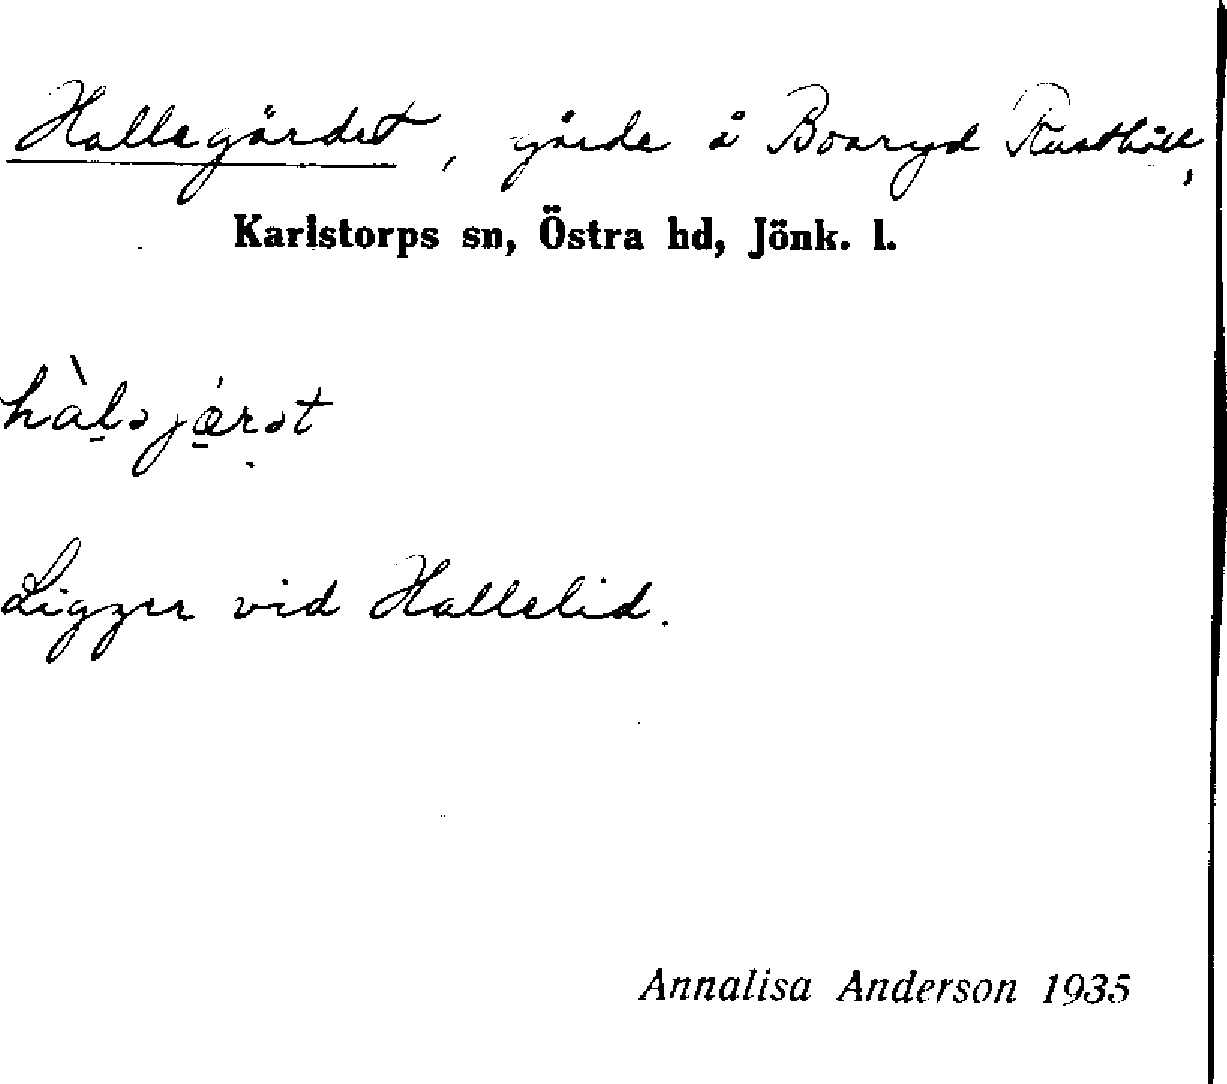 Hallegärdet, gärde å Boaryd Rusthåll,
Karlstorps sn, Östra hd, Jönk. l.
hàl̠əjǽ̠rət
Ligger vid Hallelid.
Annalisa Anderson 1935